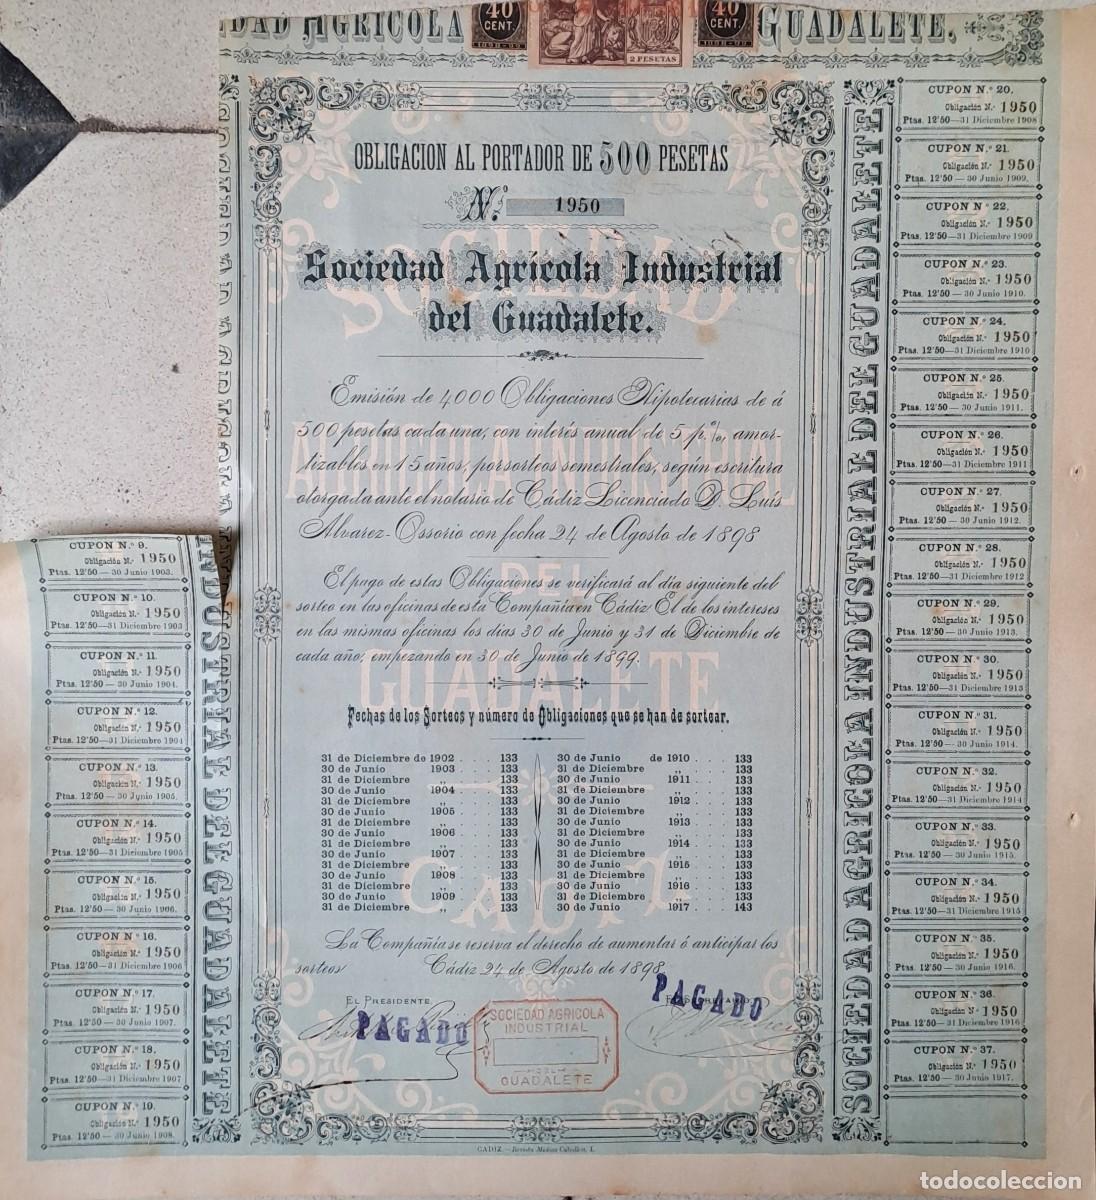 DAD AGRICOLA
GUADALETE.
40 CENT. 1898-99
2 PESETAS
40 CENT. 1898-99
OBLIGACION AL PORTADOR DE 500 PESETAS
N.º 1950
Sociedad Agrícola Industrial
del Guadalete.
Emisión de 4000 Obligaciones Hipotecarias de á
500 pesetas cada una, con interés anual de 5 p.%, amor-
tizables en 15 años, por sorteos semestrales, según escritura
otorgada ante el notario de Cádiz Licenciado D. Luís
Alvarez-Ossorio con fecha 24 de Agosto de 1898
El pago de estas Obligaciones se verificará al dia siguiente del
sorteo en las oficinas de esta Compañía en Cádiz El de los intereses
en las mismas oficinas los dias 30 de Junio y 31 de Diciembre de
cada año, empezando en 30 de Junio de 1899.
Fechas de los Sorteos y número de Obligaciones que se han de sortear.
31 de Diciembre de 1902 . . . 133
30 de Junio 1903 . . . 133
31 de Diciembre „ . . . 133
30 de Junio 1904 . . . 133
31 de Diciembre „ . . . 133
30 de Junio 1905 . . . 133
31 de Diciembre „ . . . 133
30 de Junio 1906 . . . 133
31 de Diciembre „ . . . 133
30 de Junio 1907 . . . 133
31 de Diciembre „ . . . 133
30 de Junio 1908 . . . 133
31 de Diciembre „ . . . 133
30 de Junio 1909 . . . 133
31 de Diciembre „ . . . 133
30 de Junio de 1910 . . . 133
31 de Diciembre „ . . . 133
30 de Junio 1911 . . . 133
31 de Diciembre „ . . . 133
30 de Junio 1912 . . . 133
31 de Diciembre „ . . . 133
30 de Junio 1913 . . . 133
31 de Diciembre „ . . . 133
30 de Junio 1914 . . . 133
31 de Diciembre „ . . . 133
30 de Junio 1915 . . . 133
31 de Diciembre „ . . . 133
30 de Junio 1916 . . . 133
31 de Diciembre „ . . . 133
30 de Junio 1917 . . . 143
La Compañía se reserva el derecho de aumentar ó anticipar los
sorteos Cádiz 24 de Agosto de 1898
EL PRESIDENTE,
PAGADO
SOCIEDAD AGRICOLA
INDUSTRIAL
DEL
GUADALETE
PAGADO
SOCIEDAD
AGRICOLA INDUSTRIAL
DEL
GUADALETE
CADIZ
INDUSTRIAL DEL GUADALETE
SOCIEDAD AGRICOLA INDUSTRIAL DEL GUADALETE
CUPON N.º 9.
Obligación N.º 1950
Ptas. 12'50 — 30 Junio 1903.
CUPON N.º 10.
Obligación N.º 1950
Ptas. 12'50 — 31 Diciembre 1903
CUPON N.º 11.
Obligación N.º 1950
Ptas. 12'50 — 30 Junio 1904.
CUPON N.º 12.
Obligación N.º 1950
Ptas. 12'50 — 31 Diciembre 1904
CUPON N.º 13.
Obligación N.º 1950
Ptas. 12'50 — 30 Junio 1905.
CUPON N.º 14.
Obligación N.º 1950
Ptas. 12'50 — 31 Diciembre 1905
CUPON N.º 15.
Obligación N.º 1950
Ptas. 12'50 — 30 Junio 1906.
CUPON N.º 16.
Obligación N.º 1950
Ptas. 12'50 — 31 Diciembre 1906
CUPON N.º 17.
Obligación N.º 1950
Ptas. 12'50 — 30 Junio 1907.
CUPON N.º 18.
Obligación N.º 1950
Ptas. 12'50 — 31 Diciembre 1907
CUPON N.º 19.
Obligación N.º 1950
Ptas. 12'50 — 30 Junio 1908.
CUPON N.º 20.
Obligación N.º 1950
Ptas. 12'50 — 31 Diciembre 1908
CUPON N.º 21.
Obligación N.º 1950
Ptas. 12'50 — 30 Junio 1909.
CUPON N.º 22.
Obligación N.º 1950
Ptas. 12'50 — 31 Diciembre 1909
CUPON N.º 23.
Obligación N.º 1950
Ptas. 12'50 — 30 Junio 1910.
CUPON N.º 24.
Obligación N.º 1950
Ptas. 12'50 — 31 Diciembre 1910
CUPON N.º 25.
Obligación N.º 1950
Ptas. 12'50 — 30 Junio 1911.
CUPON N.º 26.
Obligación N.º 1950
Ptas. 12'50 — 31 Diciembre 1911
CUPON N.º 27.
Obligación N.º 1950
Ptas. 12'50 — 30 Junio 1912.
CUPON N.º 28.
Obligación N.º 1950
Ptas. 12'50 — 31 Diciembre 1912
CUPON N.º 29.
Obligación N.º 1950
Ptas. 12'50 — 30 Junio 1913.
CUPON N.º 30.
Obligación N.º 1950
Ptas. 12'50 — 31 Diciembre 1913
CUPON N.º 31.
Obligación N.º 1950
Ptas. 12'50 — 30 Junio 1914.
CUPON N.º 32.
Obligación N.º 1950
Ptas. 12'50 — 31 Diciembre 1914
CUPON N.º 33.
Obligación N.º 1950
Ptas. 12'50 — 30 Junio 1915.
CUPON N.º 34.
Obligación N.º 1950
Ptas. 12'50 — 31 Diciembre 1915
CUPON N.º 35.
Obligación N.º 1950
Ptas. 12'50 — 30 Junio 1916.
CUPON N.º 36.
Obligación N.º 1950
Ptas. 12'50 — 31 Diciembre 1916
CUPON N.º 37.
Obligación N.º 1950
Ptas. 12'50 — 30 Junio 1917.
CADIZ.—Revista Médica
todocoleccion